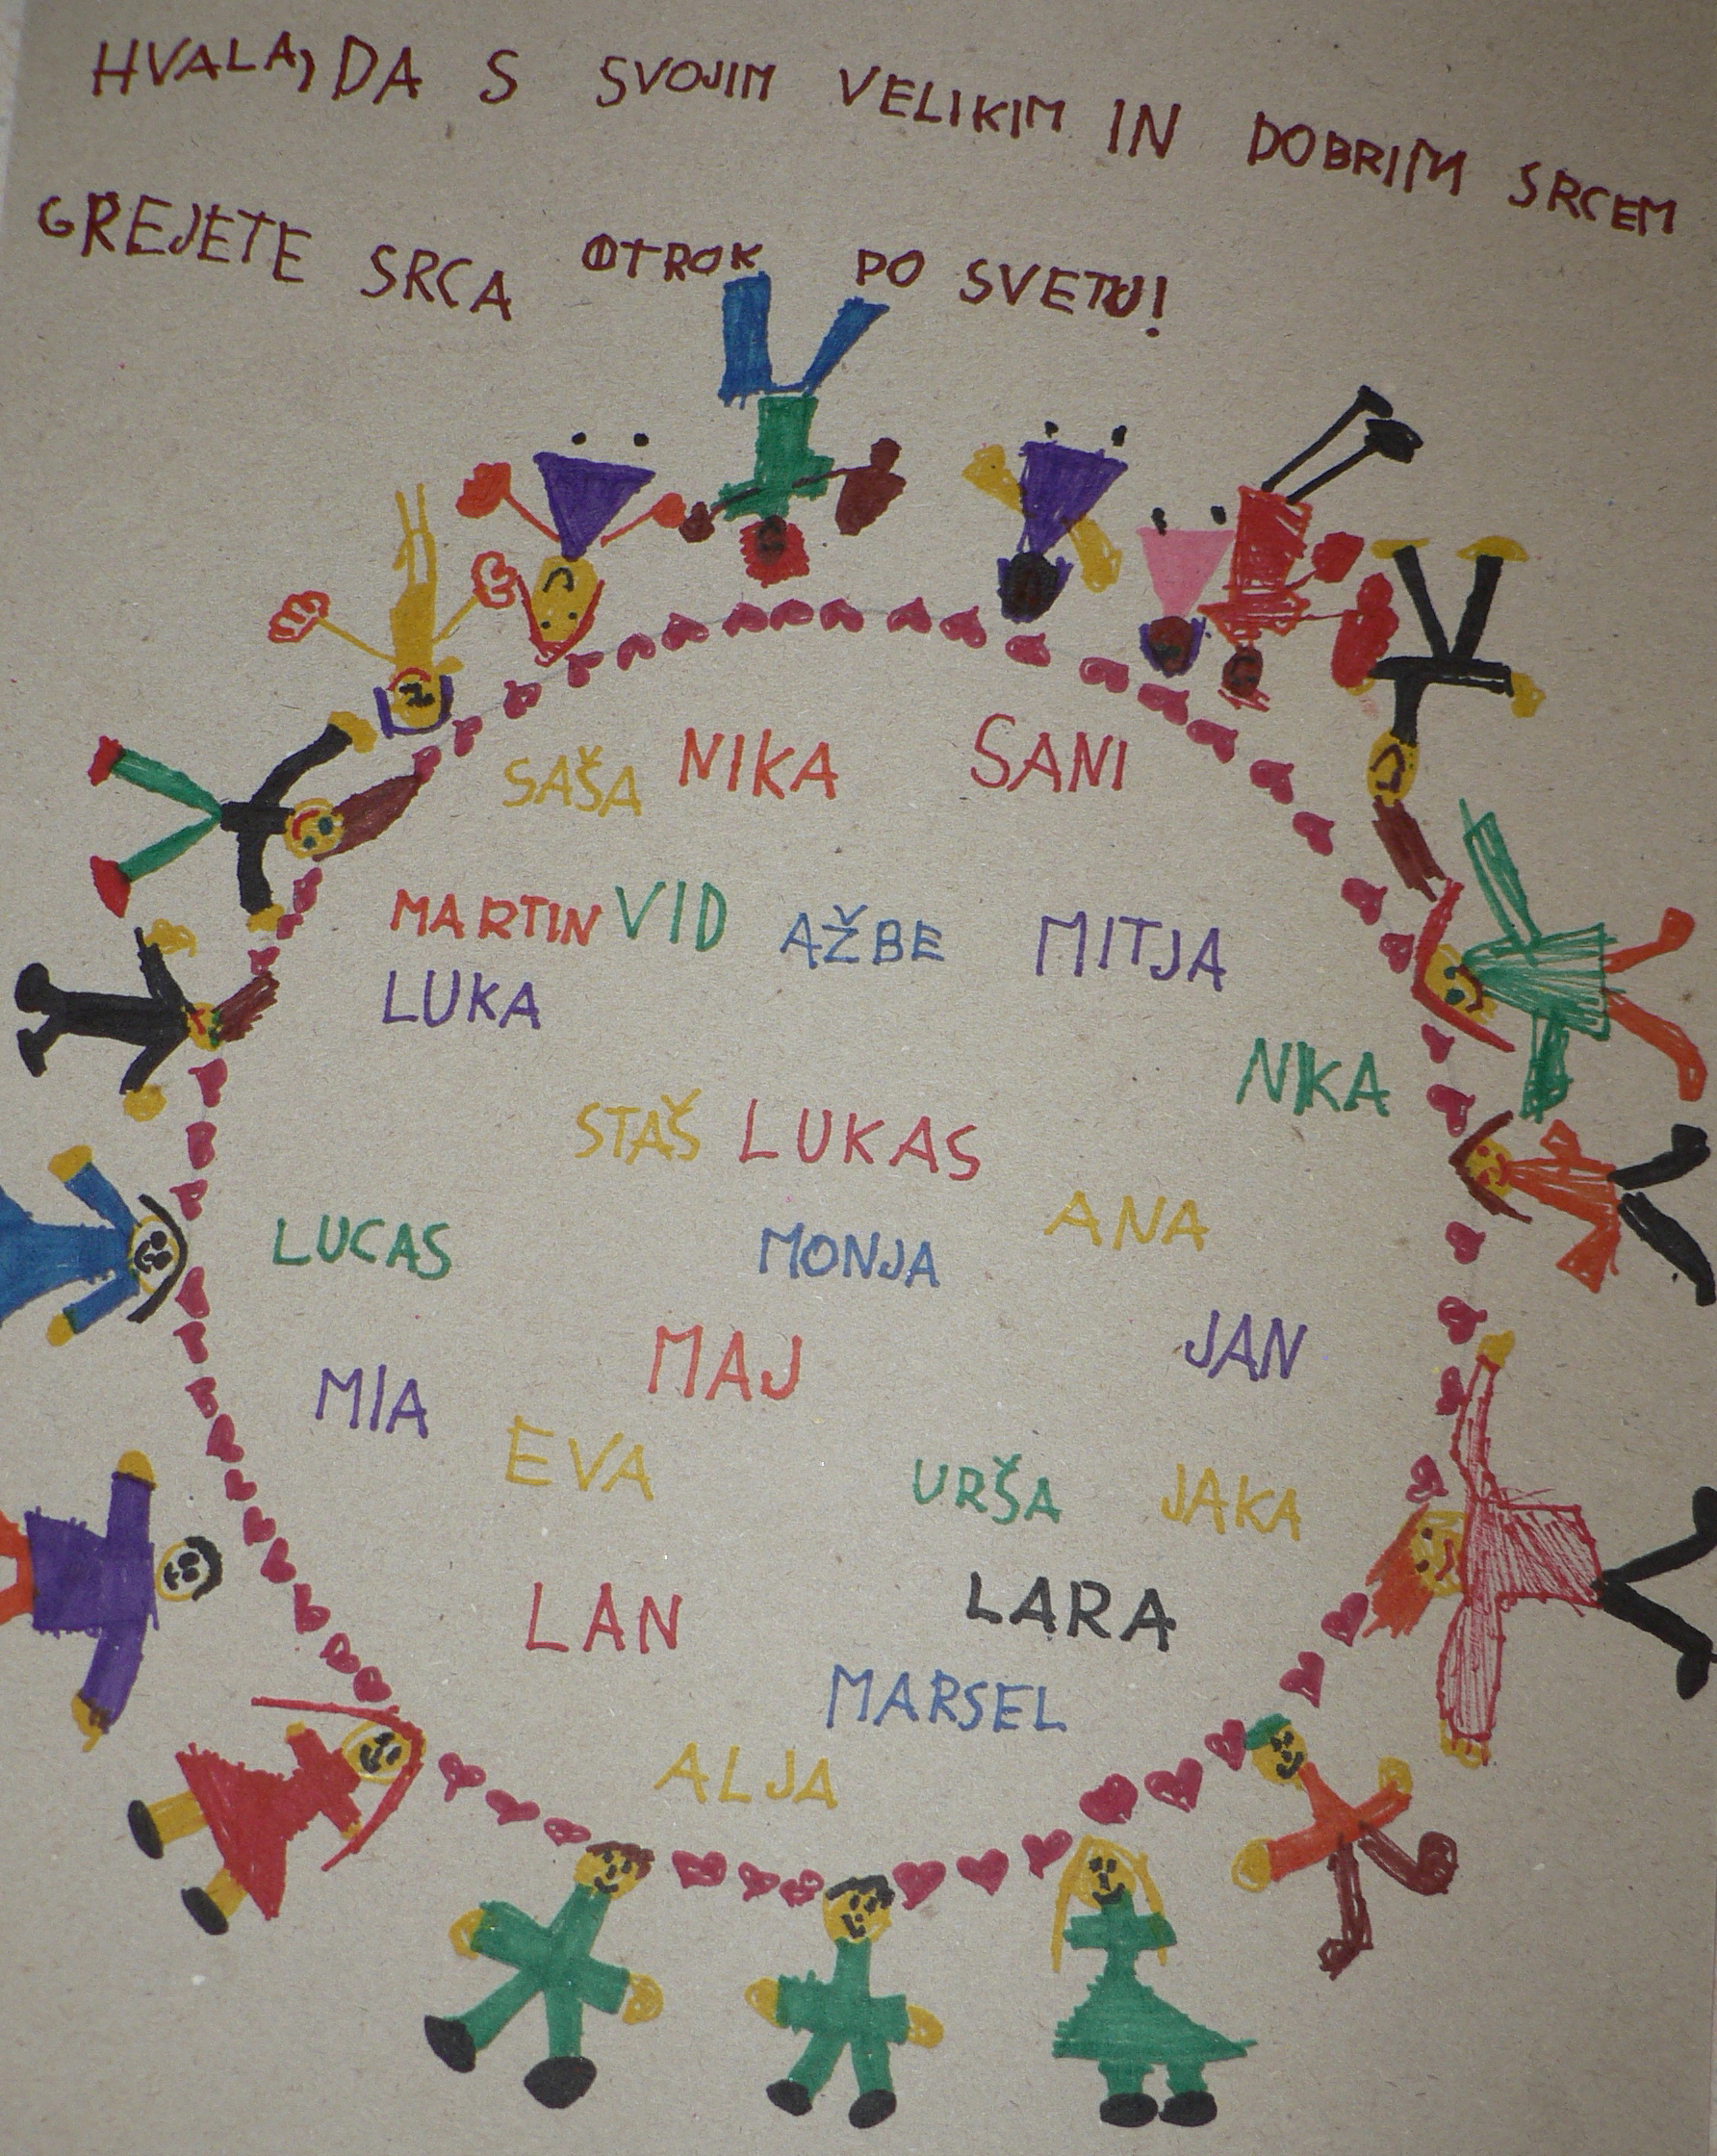 HVALA, DA S SVOJIM VELIKIM IN DOBRIM SRCEM
GREJETE SRCA OTROK PO SVETU!
SAŠA NIKA SANI
MARTIN VID AŽBE MITJA
LUKA
NIKA
STAŠ LUKAS
ANA
LUCAS MONJA
JAN
MIA MAJ
EVA URŠA JAKA
LAN LARA
MARSEL
ALJA